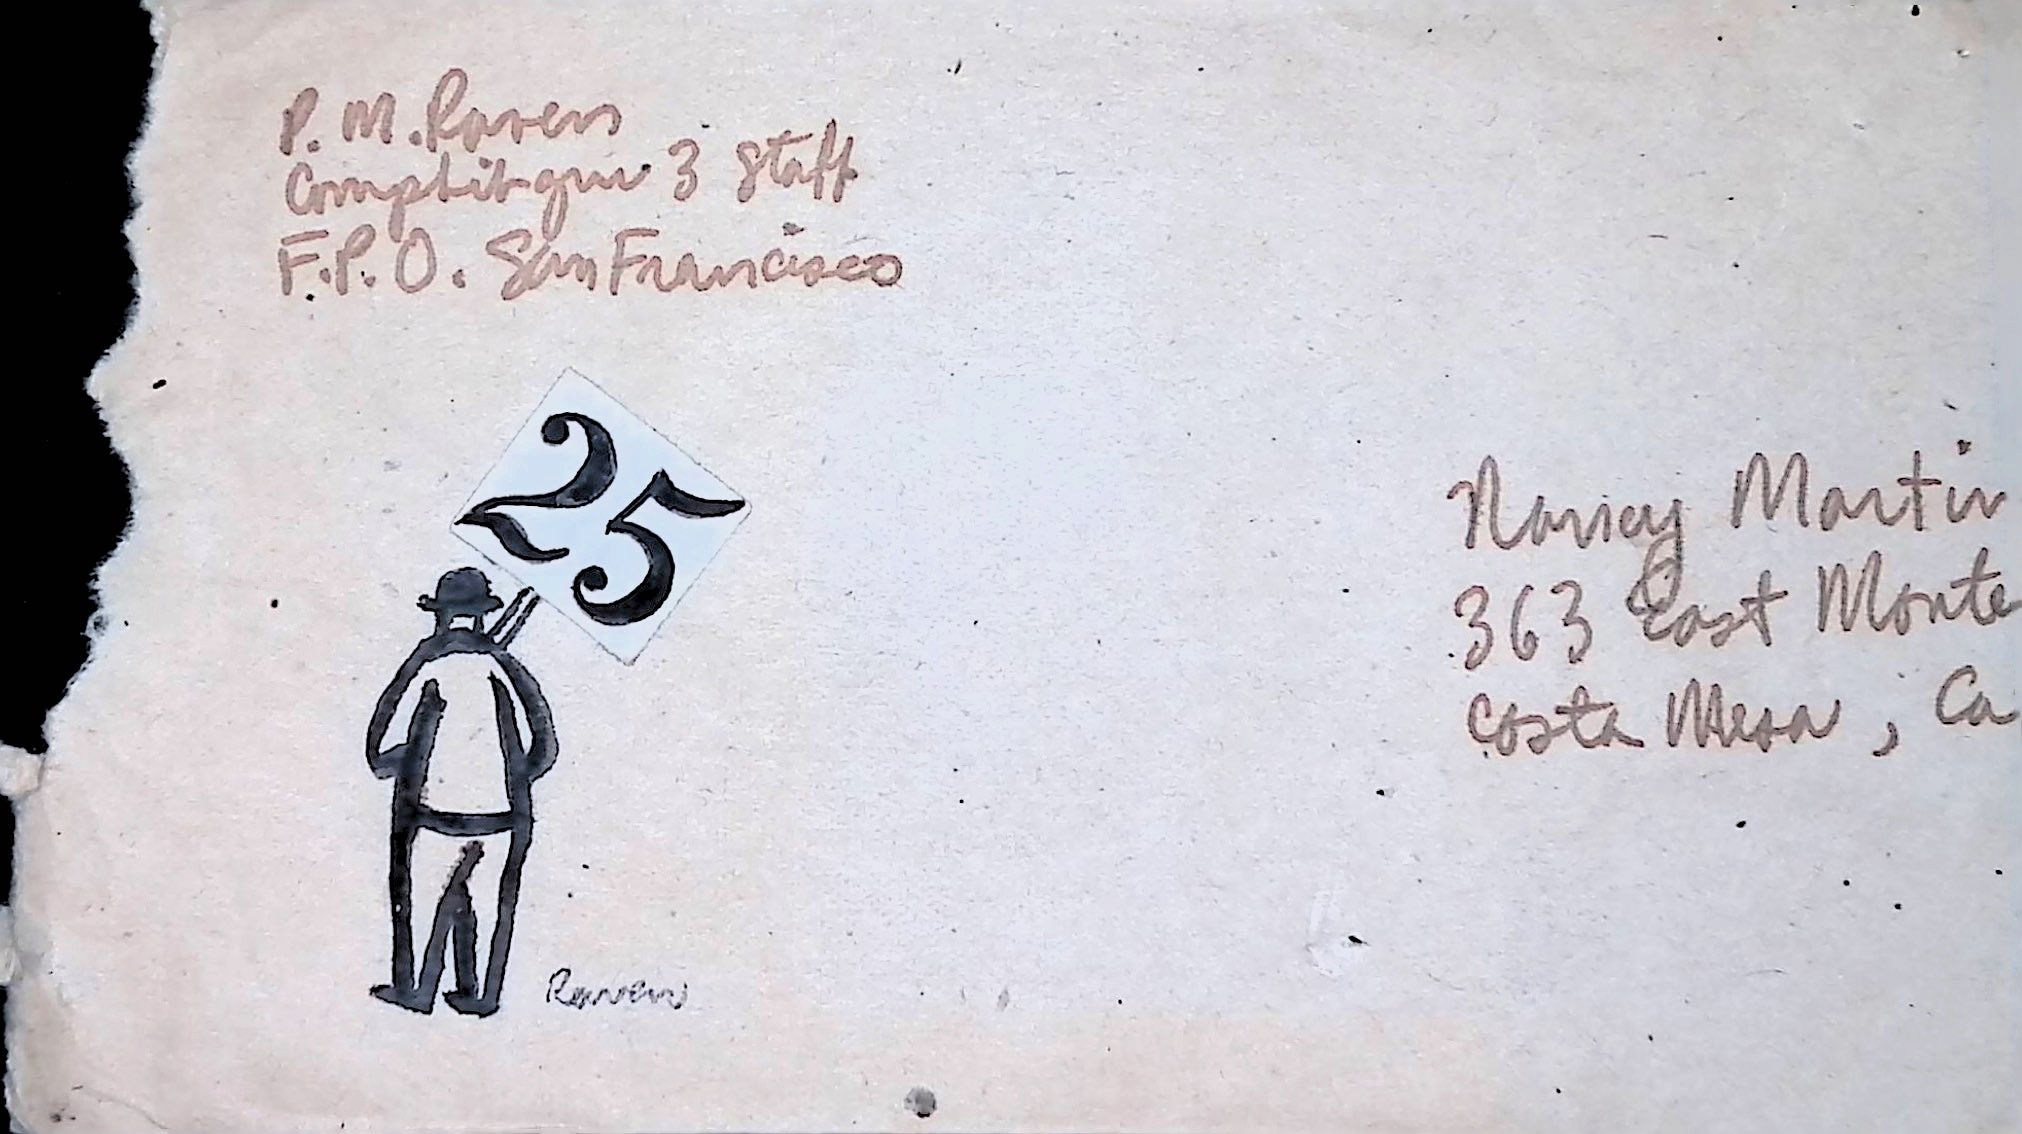 P. M. Raven
Comphibgru 3 Staff
F.P.O. San Francisco
25
Raven
Nancy Martin
363 East Monte
Costa Mesa, Ca